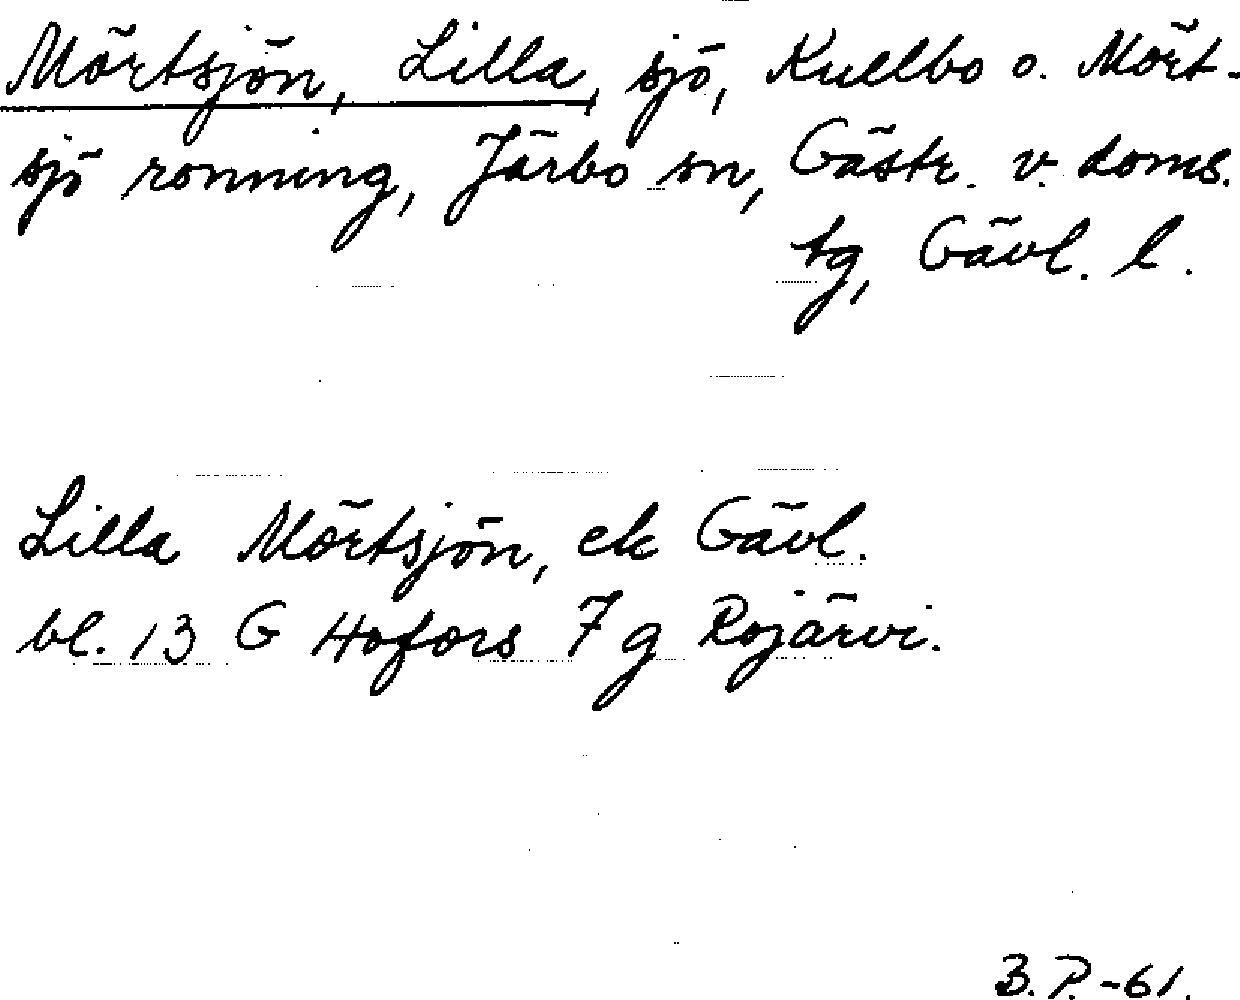 Mörtsjön, Lilla, sjö, Kullbo o. Mört-
sjö ronning, Järbo sn, Gästr. v. doms.
tg, Gävl. l.
Lilla Mörtsjön, ek Gävl.
bl. 13 G Hofors 7 g Rojärvi.
B.P. -61.